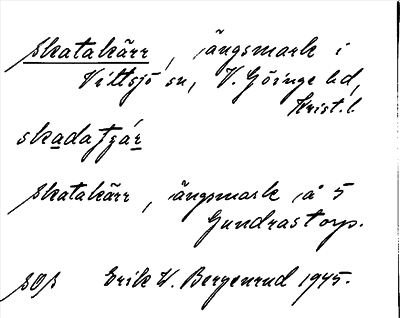 Skatakärr, ängsmark i
Vittsjö sn, V. Göinge hd,
Krist. l.
skadatjár
Skatakärr, ängsmark å 5
Gundrastorp.
SOS Erik W. Bergenrud 1945.